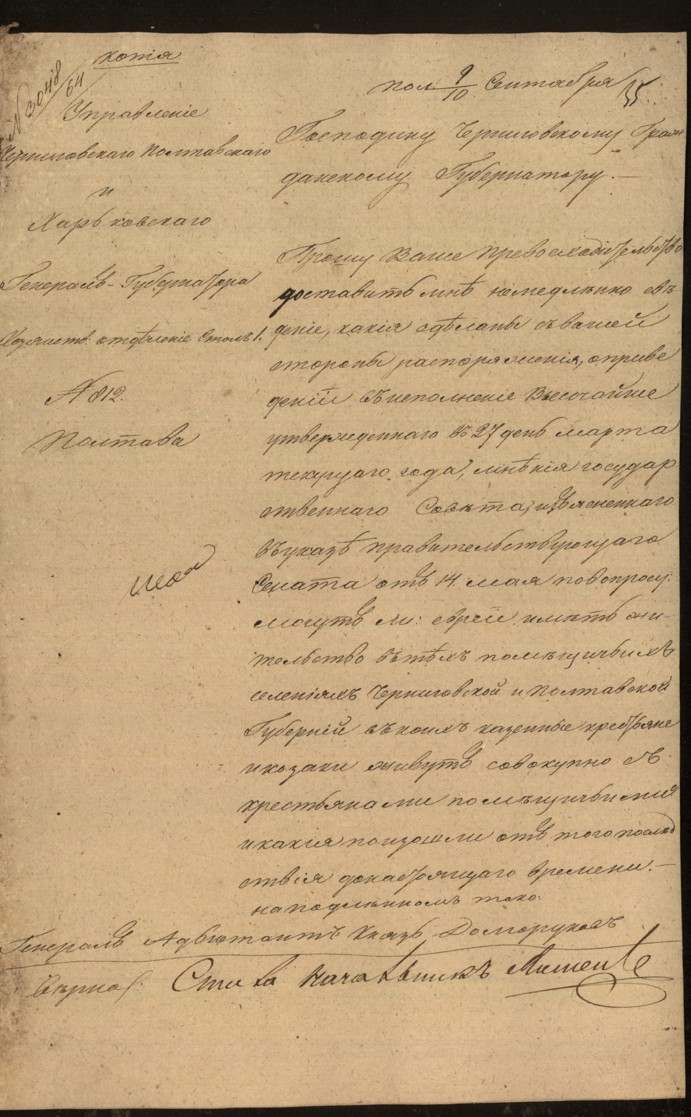 копія
№ 3048/54
пол 9/10 Сентября
Управленіе
Черниговскаго Полтавскаго
и
Харьковскаго
Генералъ-Губернатора
отдѣленіе Столъ 1.
№ 812.
Полтава
Господину Черниговскому Граж
данскому Губернатору.—
Прошу Ваше Превосходительство
доставить мнѣ немедленно свѣ
деніе, какія сдѣланы съ вашей
стороны распоряженія, о приве
деніи въ исполненіе Высочайше
утвержденнаго въ 27 день марта
текущаго года, мнѣнія государ
ственнаго Совѣта, изъясненнаго
въ указѣ правительствующаго
Сената отъ 14 мая по вопросу:
могутъ ли: евреи имѣть жи-
тельство въ тѣхъ помѣщичьихъ
селеніяхъ Черниговской и Полтавской
Губерній въ коихъ казенные крестьяне
и козаки живутъ совокупно съ
крестьянами помѣщичьими
и какія произошли отъ того послѣд
ствія до настоящаго времени.—
на подлинномъ тако:
Генералъ Адъютантъ Князь Долгоруковъ
Вѣрно: Стола Начальникъ